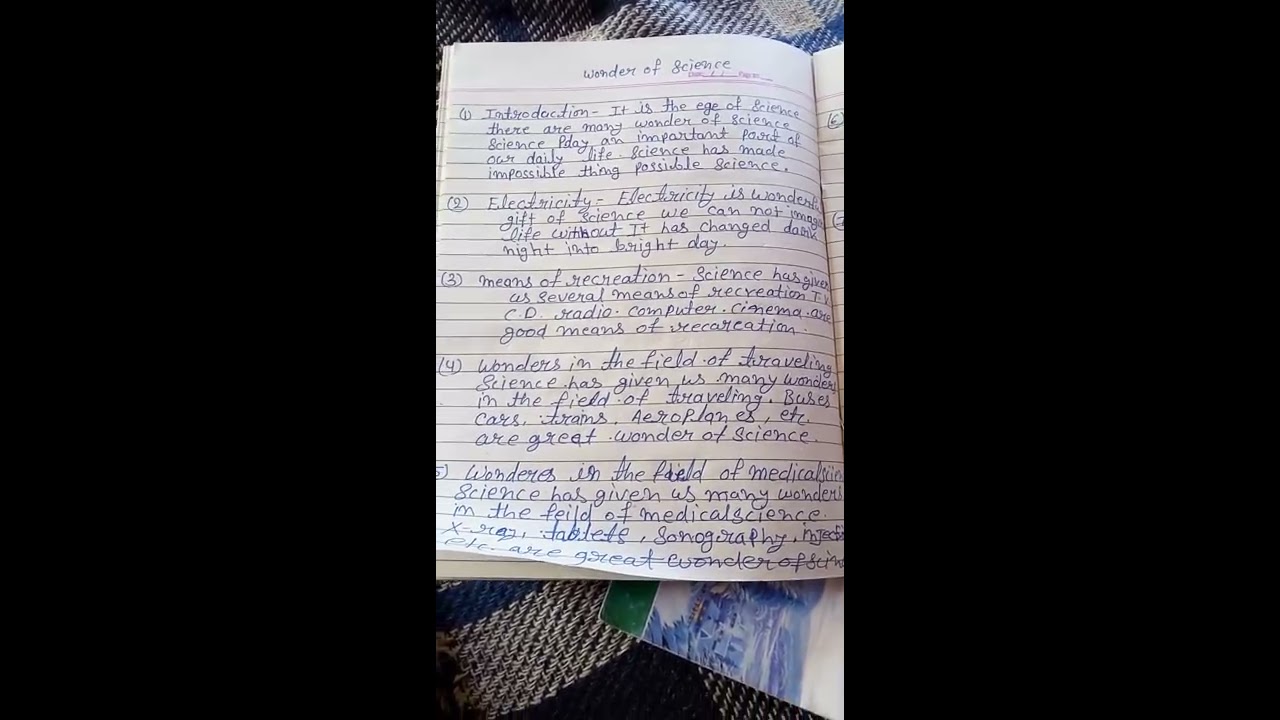 wonder of Science
Date / / Page no
(1) Introduction- It is the ege of Science
there are many wonder of science
Science Pday an impartant part of
our daily life. Science has made
impossible thing possible Science.
(2) Electricity- Electricity is wonderf
gift of science we can not imagi
life without It has changed dark
night into bright day.
(3) means of recreation - Science has given
us several means of recreation T.V
C.D. radio. computer. cinema. are
good means of recareation.
(4) Wonders in the field of traveling
Science has given us many wonders
in the field of traveling. Buses
Cars, trains, AeroPlanes, etc.
are great wonder of Science.
5) Wonderes in the field of medicalscien
Science has given us many wonders
in the feild of medicalscience.
X-ray, tablets, Sonography, injecti
etc. are great wonder of scin
(6)